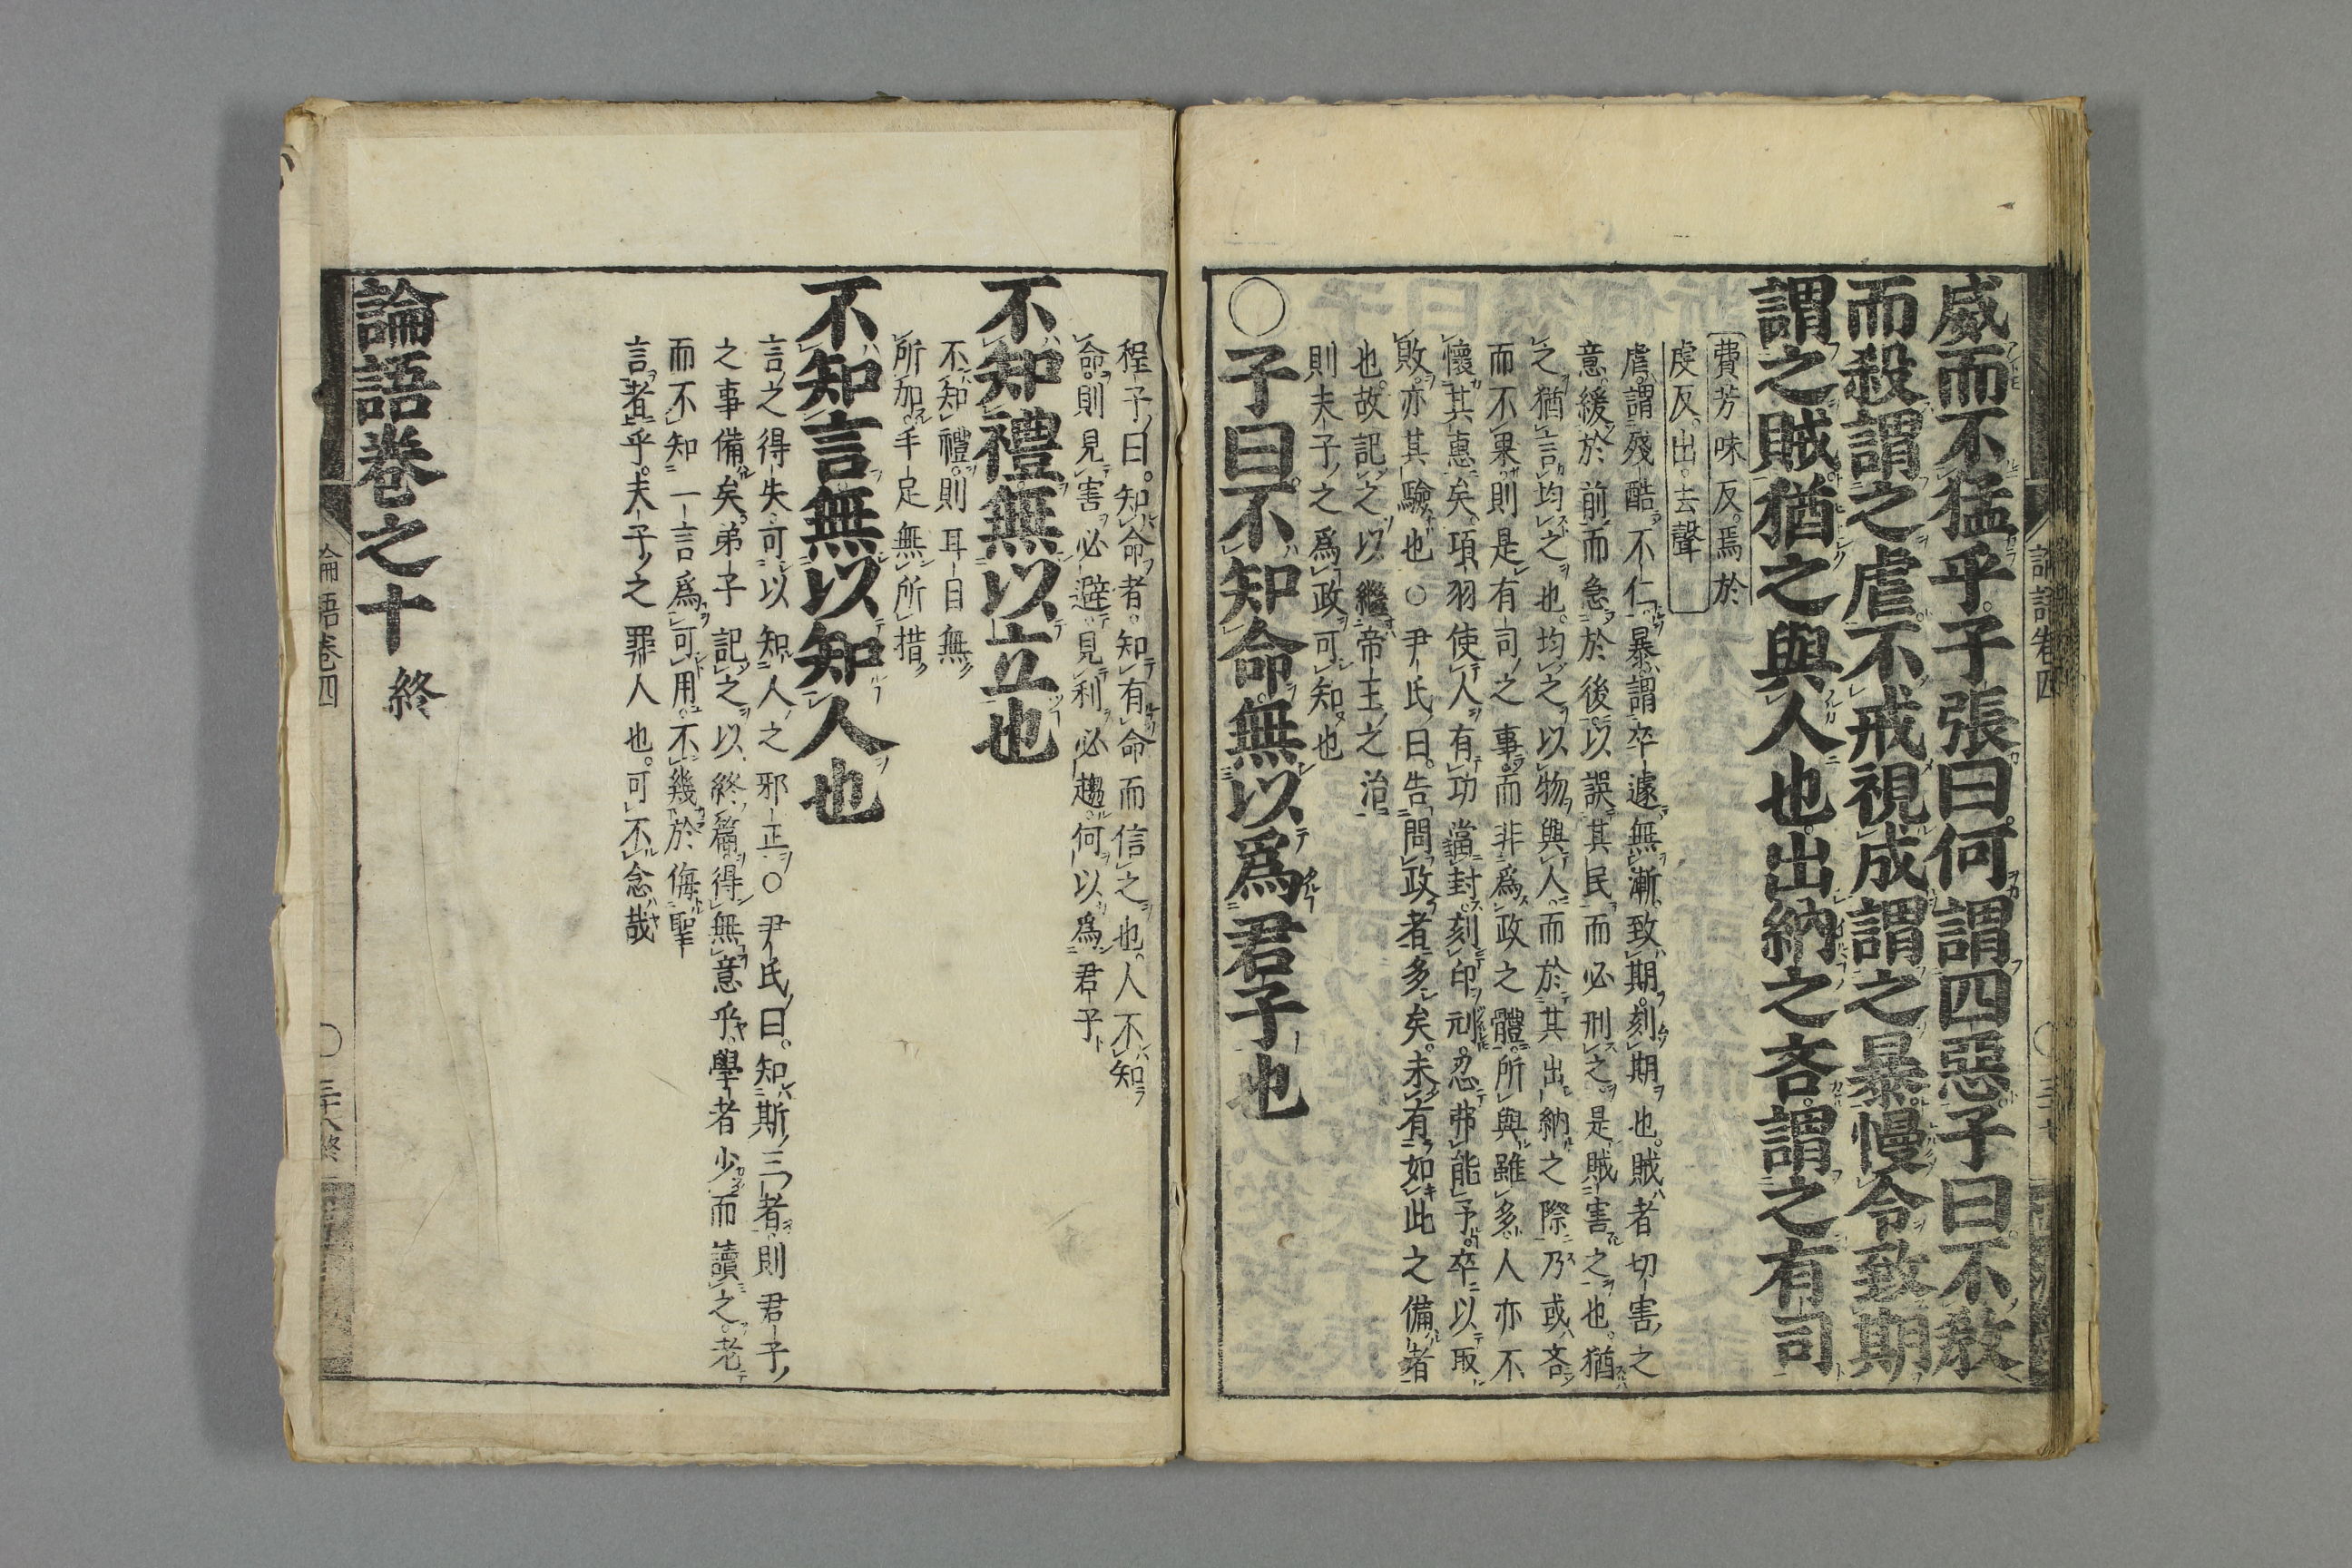 威而不猛乎子張曰何謂四惡子曰不教
而殺謂之虐不戒視成謂之暴慢令致期
謂之賊猶之與人也出納之吝謂之有司
費芳味反焉於
虔反出去聲
虐謂殘酷不仁暴謂卒遽無漸致期刻期也賊者切害之
意緩於前而急於後以誤其民而必刑之是賊害之也猶
之猶言均之也均之以物與人而於其出納之際乃或吝
而不果則是有司之事而非爲政之體所與雖多人亦不
懷其惠矣項羽使人有功當封刻印刓忍弗能予卒以取
敗亦其驗也○尹氏曰告問政者多矣未有如此之備者
也故記之以繼帝王之治
則夫子之爲政可知也
○子曰不知命無以爲君子也
程子曰知命者知有命而信之也人不知
命則見害必避見利必趨何以爲君子
不知禮無以立也
不知禮則耳目無
所加手足無所措
不知言無以知人也
言之得失可以知人之邪正○尹氏曰知斯三者則君子
之事備矣弟子記之以終篇得無意乎學者少而讀之老
而不知一言爲可用不幾於侮聖
言者乎夫子之罪人也可不念哉
論語卷之十 終
論語卷四
三十八終